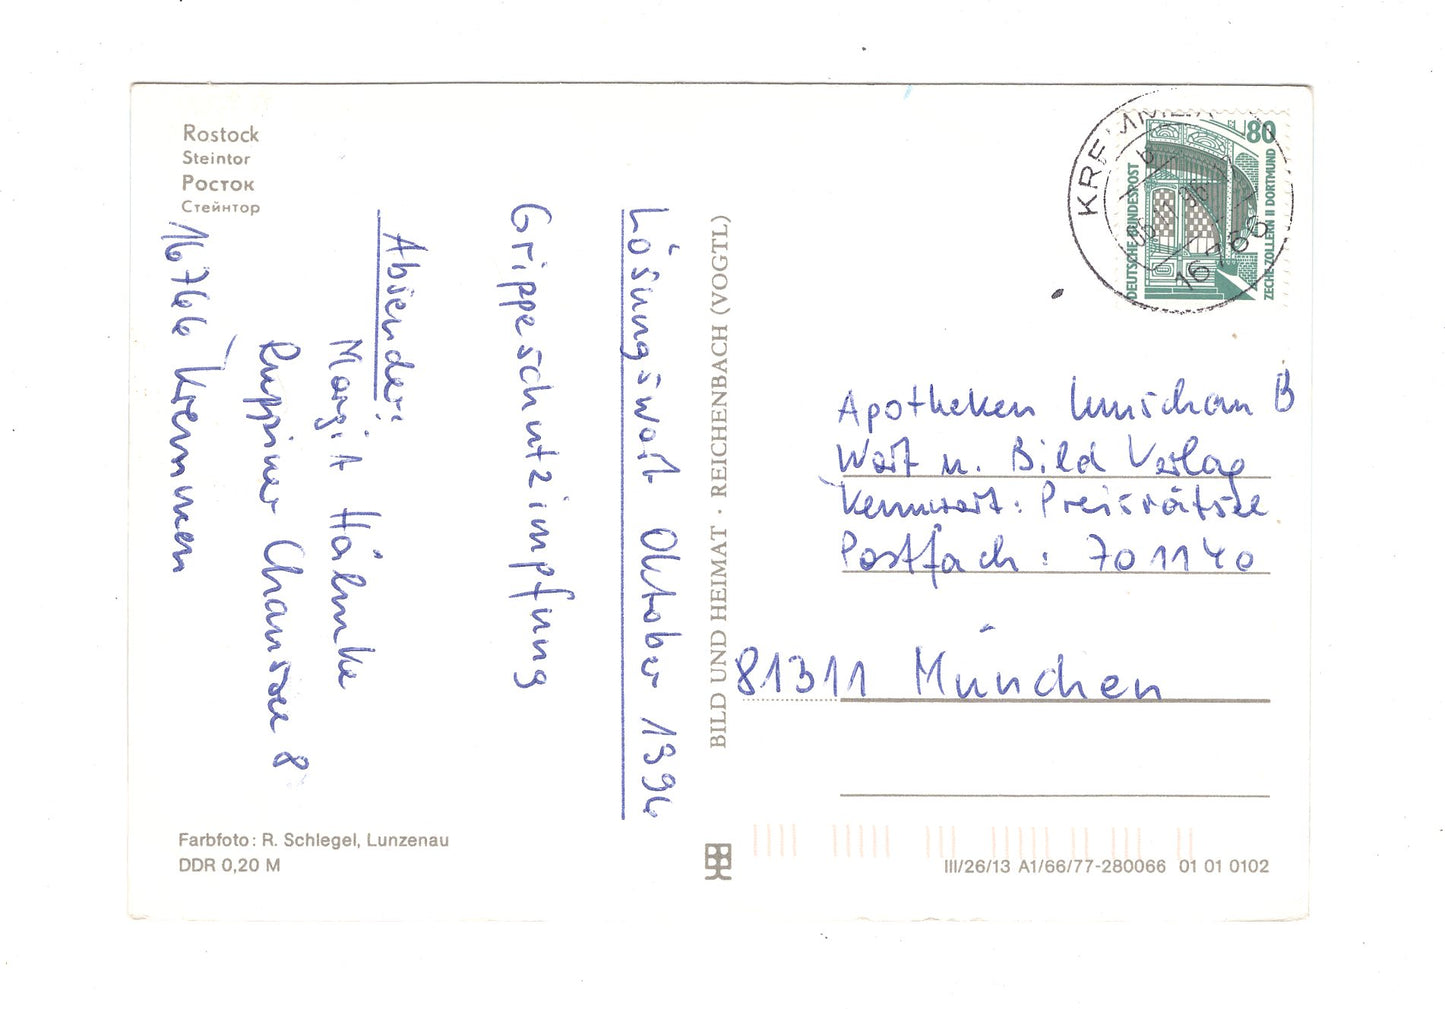 Rostock
Steintor
Росток
Стейнтор
Lösungswort Oktober 1996
Grippeschutzimpfung
Absender:
Margit Hälmke
Ruppiner Chaussee 8
16766 Kremmen
Farbfoto: R. Schlegel, Lunzenau
DDR 0,20 M
BILD UND HEIMAT · REICHENBACH (VOGTL)
DEUTSCHE BUNDESPOST
80
ZECHE ZOLLERN II DORTMUND
KREMMEN
b
05.11.96
16766
Apotheken Umschau B
Wort u. Bild Verlag
Kennwort: Preisrätsel
Postfach: 701140
81311 München
III/26/13 A1/66/77-280066 01 01 0102